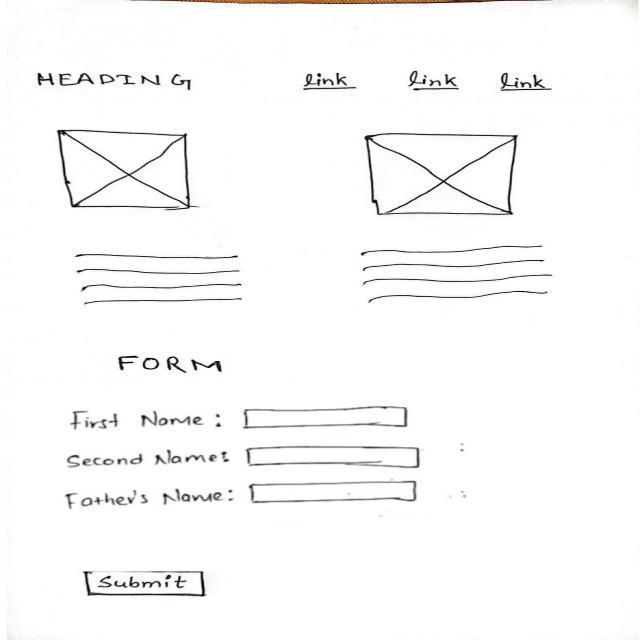 HEADING link link link
FORM
First Name :
Second Name:
Father's Name:
Submit